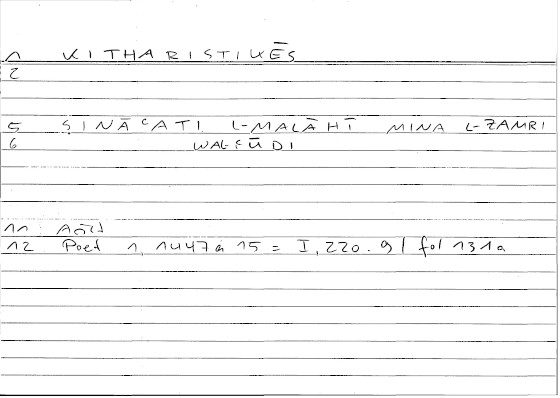 1 KITHARISTIKĒS
2
5 ṢINĀʿATI L-MALĀHĪ MINA L-ZAMRI
6 WAL-ʿŪDI
11 Arist
12 Poet 1, 1447a 15 = I, 220.9 / fol 131a